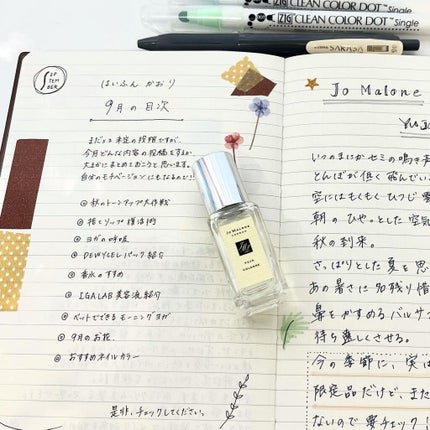 ZIG CLEAN COLOR DOT Single
ZIG CLEAN COLOR DOT Single
SARASA
SEPTEMBER
はいふん かおり
9月の目次
まだまだ未定の段階ですが、
今月どんな内容の投稿をするか、
大まかにまとめておこうと思います。
自分のモチベーションにもなるので!!
◎ 秋のトーンアップ大作戦
◎ 指とリップ護活術
◎ ヨガの呼吸
◎ DEWYCELパック紹介
◎ 香水のすすめ
◎ IGALAB美容液紹介
◎ ベットでできるモーニングヨガ
◎ 9月のお花.
◎ おすすめネイルカラー
是非、チェックしてください。
JO MALONE
LONDON
COLOGNE
Jo Malone
いつのまにかセミの鳴き
とんぼが低く飛んでい
空にはもくもくひつじ雲
朝のひやっとした空気
秋の到来。
さっぱりとした夏を思
あの暑さに名残り惜
鼻をかすめるバルサ
待ち遠しくさせる。
今の季節に、実は
限定品だけど、また
ないので要チェック!